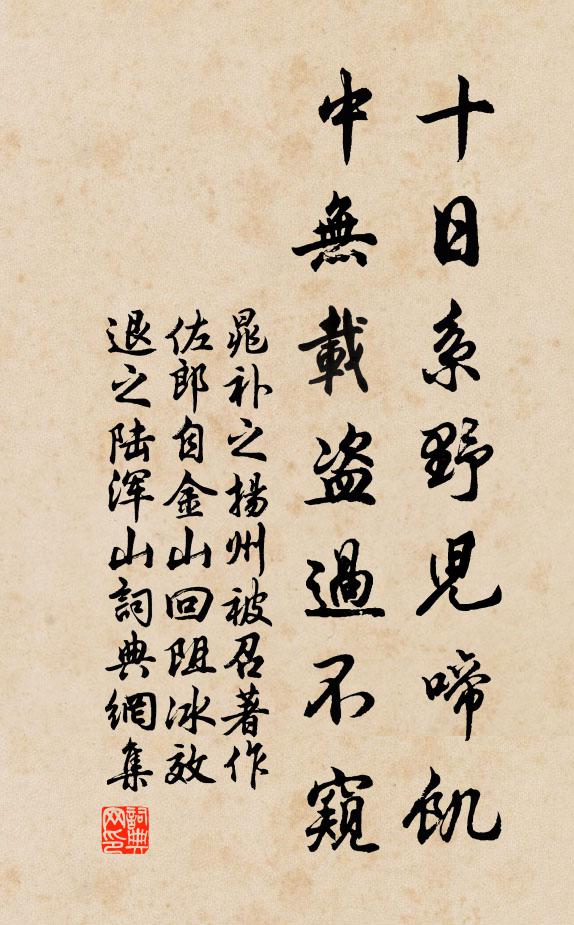 十日系野児啼飢
中無載盗過不窺
晁补之揚州被召著作
佐郎自金山回阻冰效
退之陆浑山詞典網集
詞典网印